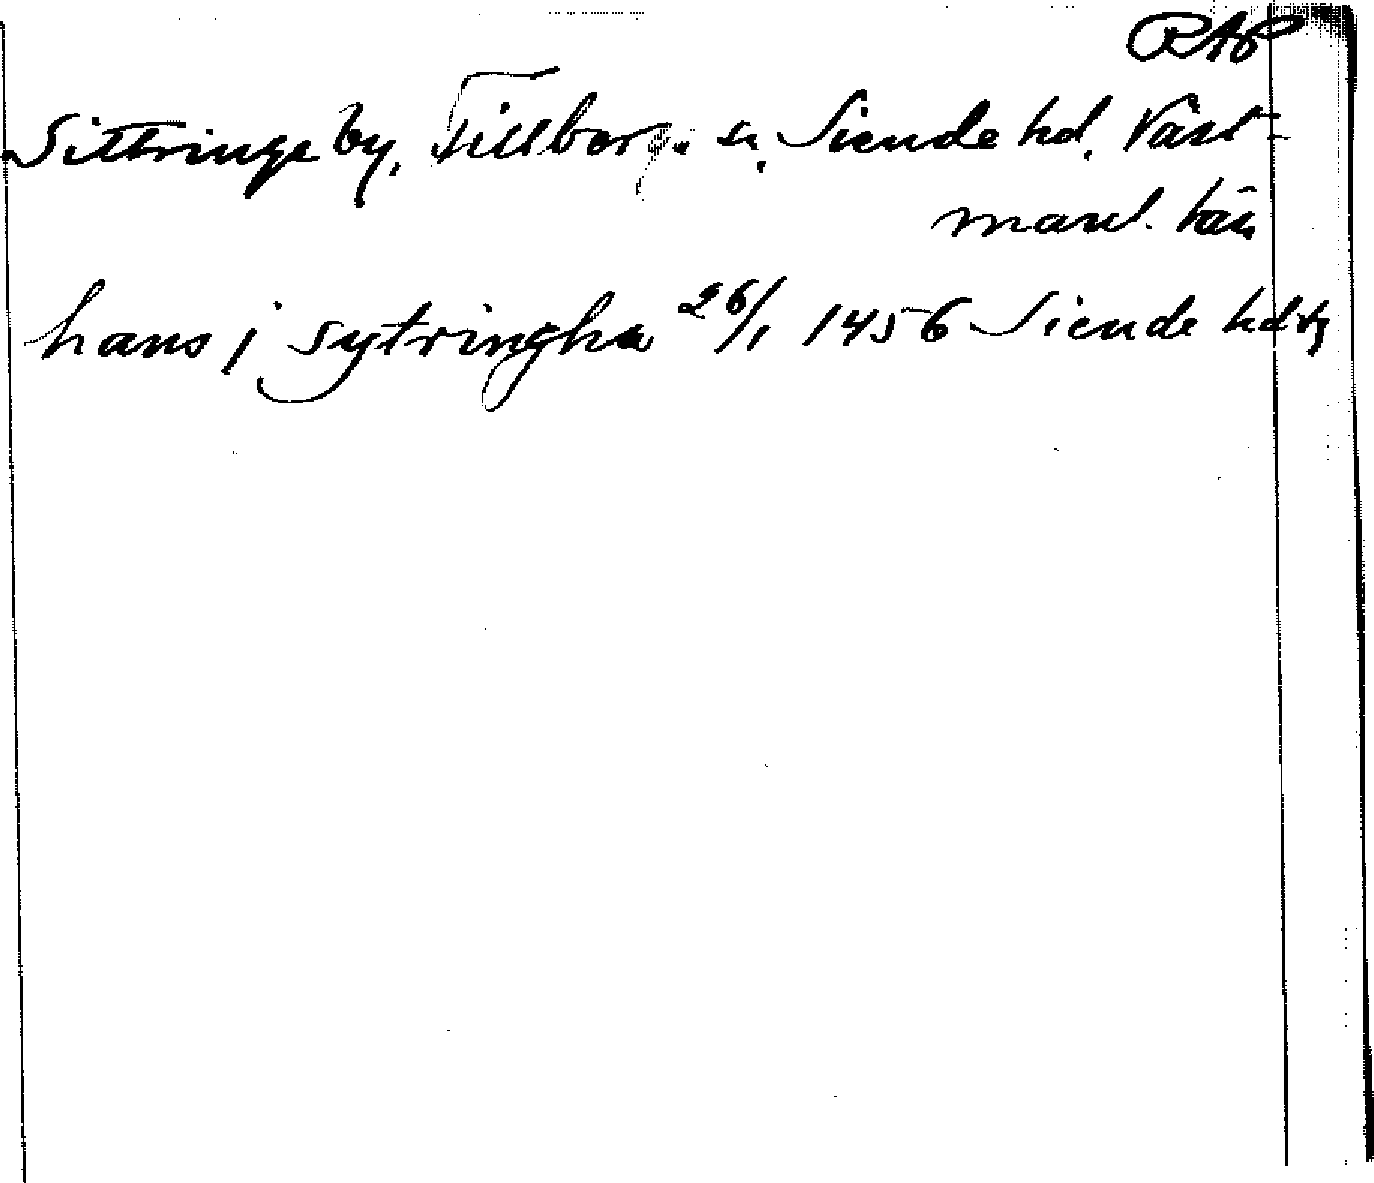 RAP
Sittringe by, Tillberga sn, Siende hd. Väst-
manl. län
hans j sytringha 26/1 1456 Siende hdtg